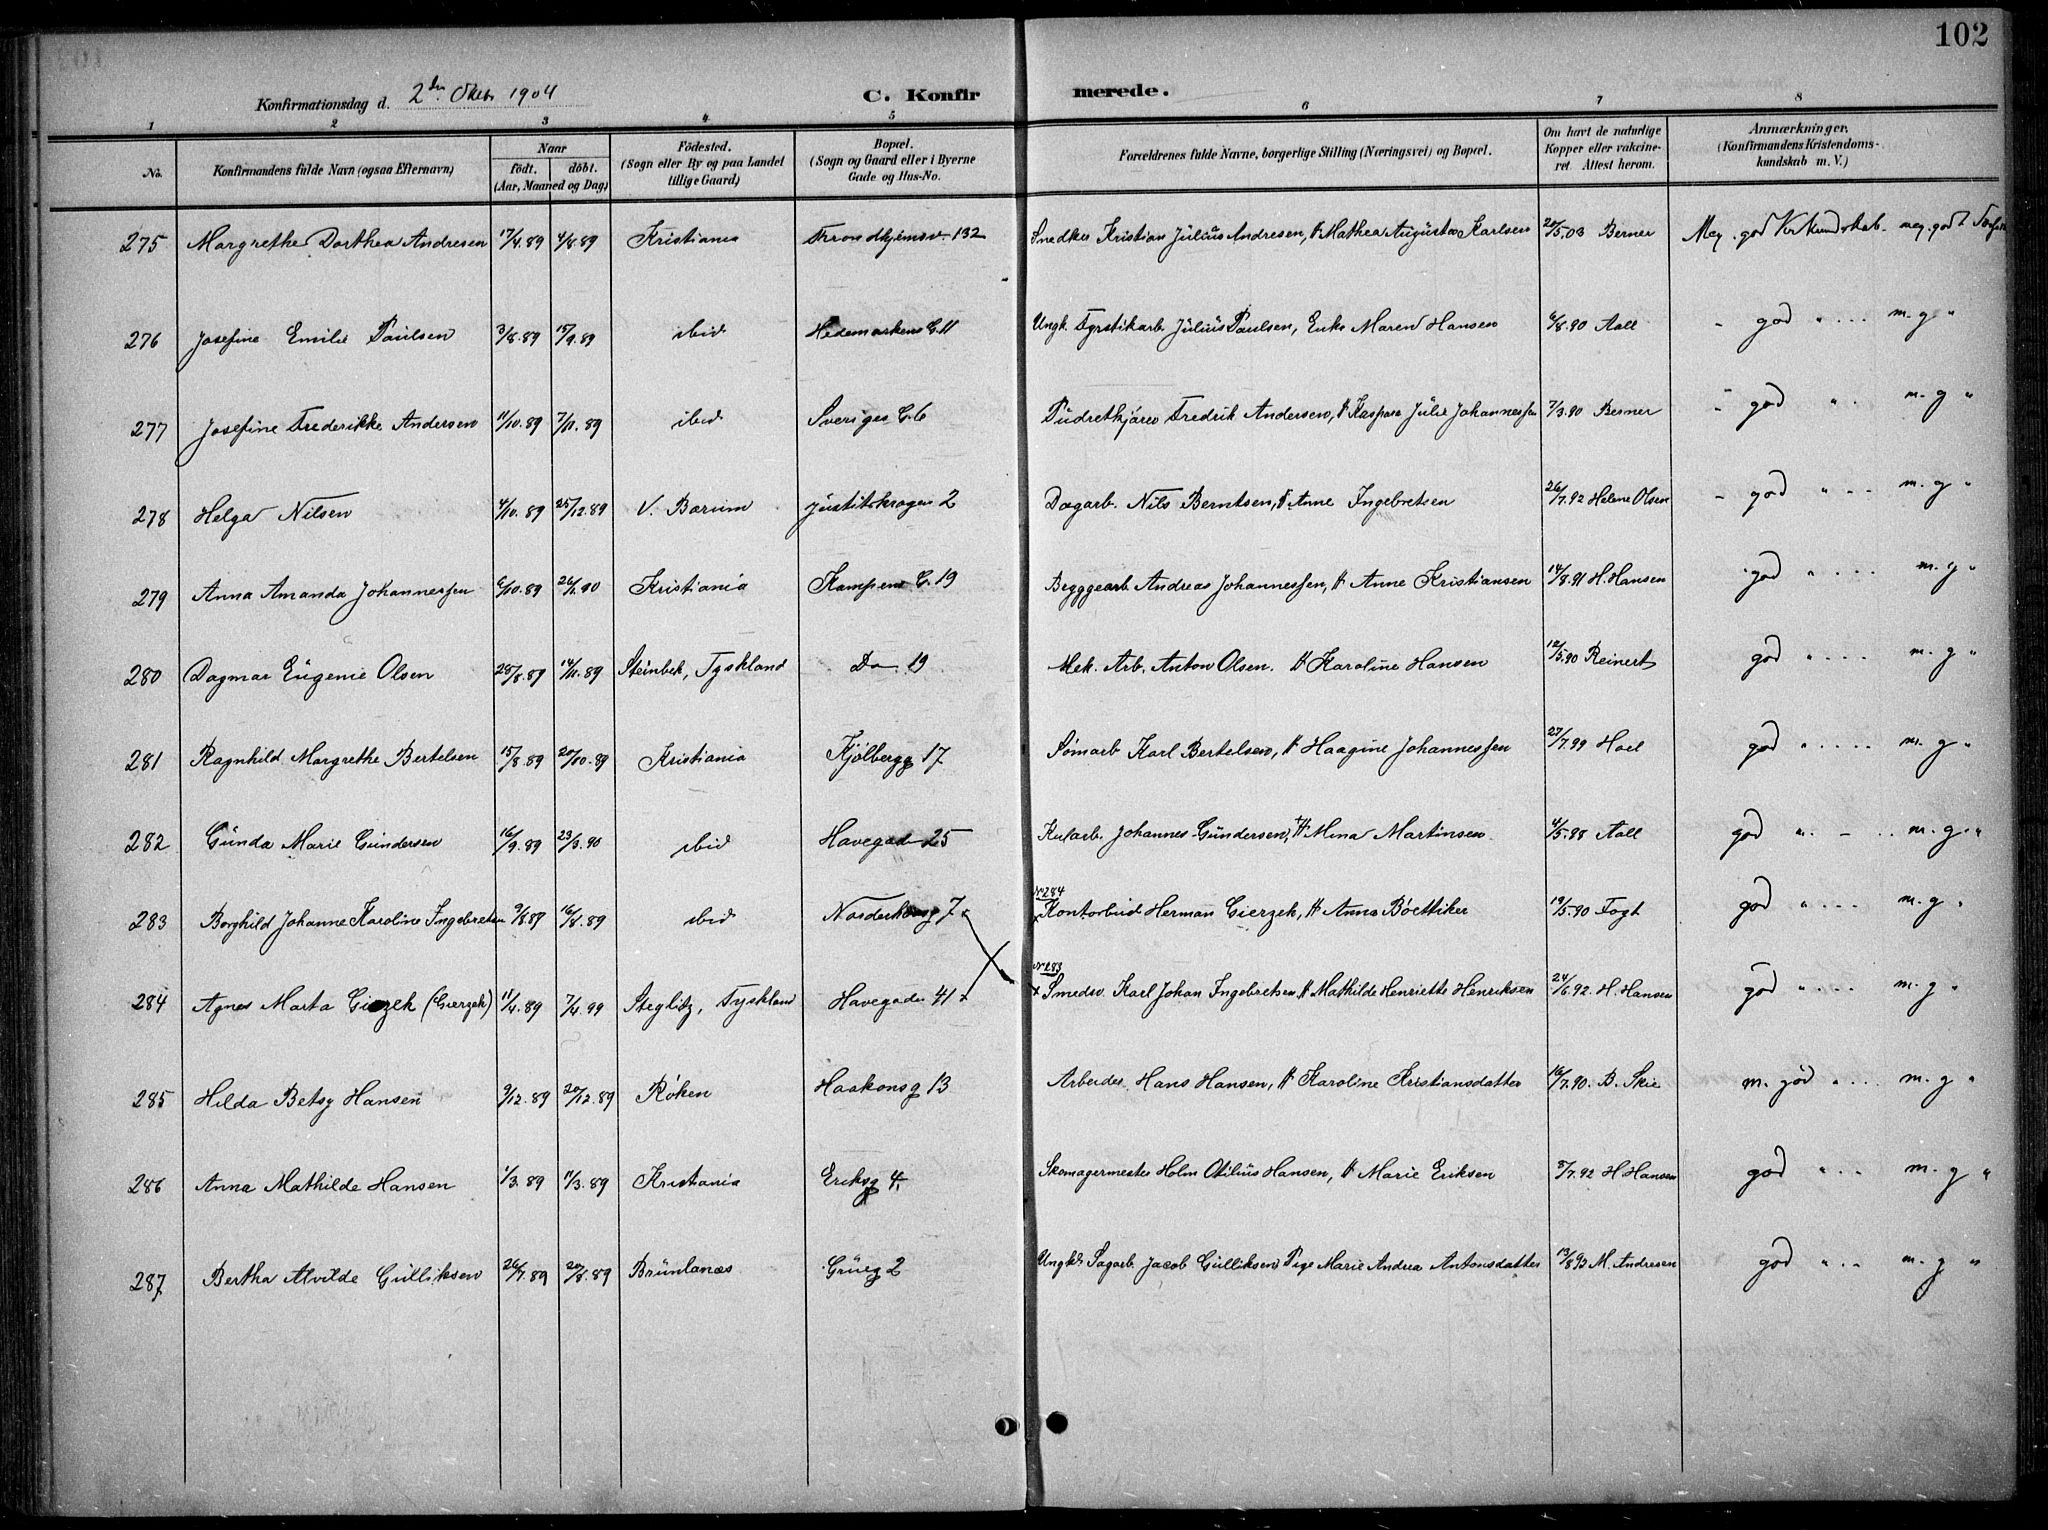 102
Konfirmationsdag d. 2den Oktbr 1904 C. Konfirmerede.
1 2 3 4 5 6 7 8
No. Konfirmandens fulde Navn (ogsaa Efternavn) Naar født. døbt. (Aar, Maaned og Dag) Fødested. (Sogn eller By og paa Landet tillige Gaard) Bopæl. (Sogn og Gaard eller i Byerne Gade og Hus-No. Forældrenes fulde Navne, borgerlige Stilling (Næringsvei) og Bopæl. Om havt de naturlige Kopper eller vakcineret. Attest herom. Anmærkninger. (Konfirmandens Kristendomskundskab m. V.)
275 Margrethe Dorthea Andresen 17/4.89 4/8.89 Kristiania Trondhjemsv. 132 Snedker Kristian Julius Andresen, H Mathea Augusta Karlsen 20/5.03 Berner Meg. god Kr Kundskab. meg. godt
276 Josefine Emilie Paulsen 3/8.89 15/9.89 ibid Hedemarkens G. 11 Ungk. Fyrstikarb. Julius Paulsen, Enke Maren Hansen 6/8.90 Aall " god " .... m. g "
277 Josefine Frederikke Andersen 11/10.89 7/11.89 ibid Sveriges G. 6 Pudretkjører Fredrik Andersen, H Kaspara Julie Johannessen 7/3.90 Berner " god " .. m. g "
278 Helga Nilsen 4/10.89 25/12.89 V. Bærum Justitskrogen 2 Dagarb. Nils Berntsen, H Anne Ingebretsen 26/7.92 Helene Olsen " god " ... m. g "
279 Anna Amanda Johannessen 6/10.89 26/1.90 Kristiania Kampens G. 19 Byggearb. Andreas Johannessen, H Anne Kristiansen 14/8.91 H. Hansen god " .... m. g "
280 Dagmar Eugenie Olsen 28/8.89 14/11.89 Steinbek, Tyskland Do 19 Mek. Arb. Anton Olsen. H Karoline Hansen 12/5.90 Reinert god " .... m. g "
281 Ragnhild Margrethe Bertelsen 15/8.89 20/10.89 Kristiania Kjølbergg 17 Sømarb Karl Bertelsen, H Haagine Johannessen 27/7.99 Hoel god " .... m. g "
282 Gunda Marie Gundersen 16/9.89 23/3.90 ibid Havegaden 25 Kularb. Johannes Gundersen, H Mina Martinsen 4/5.98 Aall god " - .. m. g "
283 Borghild Johanne Karoline Ingebretsen 9/8.89 16/8.89 ibid Norderhovsg 7 × Nr 284 × Kontorbud Herman Gierzek, H Anna Böettiker 19/5.90 Fogt god " .... m. g "
284 Agnes Marta Gierzek (Gierzek) 11/4.89 7/4.99 Steglitz, Tyskland Havegaden 41 × Nr 283 × Smedsv. Karl Johan Ingebretsen H Mathilde Henriette Henriksen 24/6.92 H. Hansen god " .... m. g "
285 Hilda Betsy Hansen 9/12.89 20/12.89 Røken Haakonsg 13 Arbeider Hans Hansen, H Karoline Kristiansdatter 16/7.90. B. Skie m. god " ... m. g "
286 Anna Mathilde Hansen 1/3.89 11/3.89 Kristiania Eriksg 4 Skomagermester Holm Otilius Hansen, H Marie Eriksen 8/7.92 H Hansen god " ... m. g "
287 Bertha Alvilde Gulliksen 26/7.89 20/8.89 Brunlanæs Grueg 2 Ungk. Sagarb. Jacob Gulliksen, Pige Marie Andrea Antonsdatter 13/8.93 M. Andresen god " .. m. g "